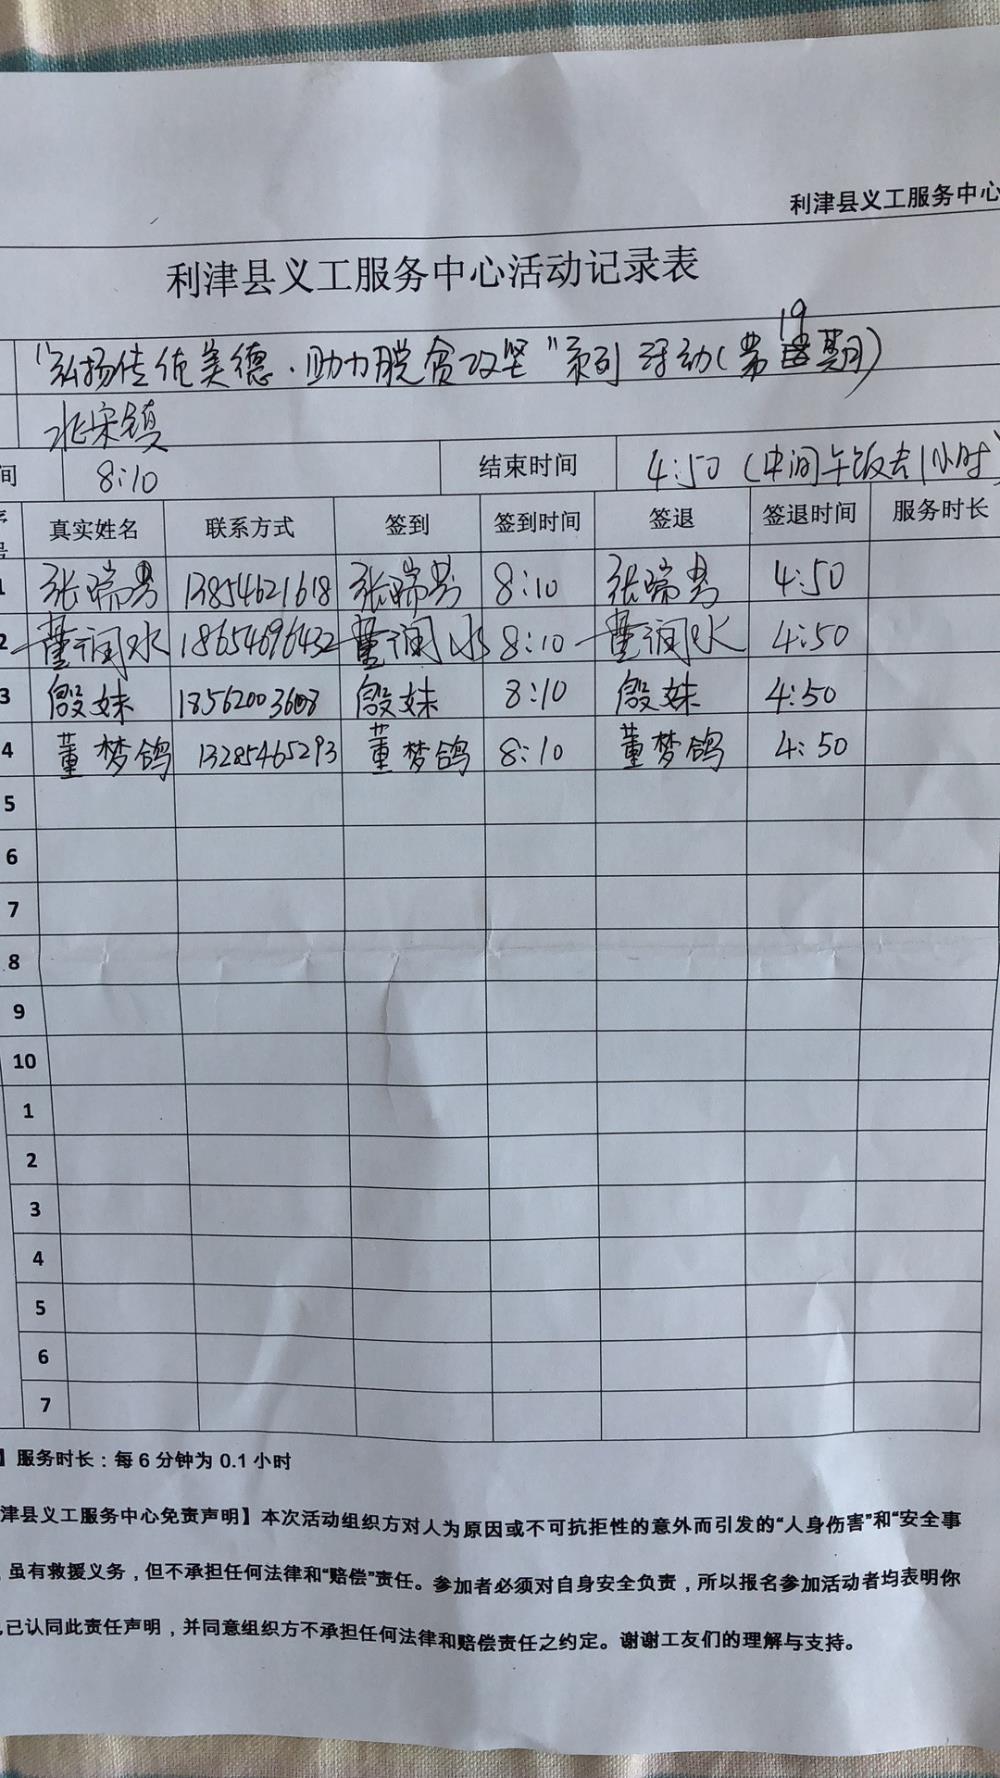 利津县义工服务中心
利津县义工服务中心活动记录表
“弘扬传统美德·助力脱贫攻坚”系列活动(第19期)
北宋镇
间 8:10 结束时间 4:50(中间午饭去1小时)
序号 真实姓名 联系方式 签到 签到时间 签退 签退时间 服务时长
1 张瑞芳 13854621618 张瑞芳 8:10 张瑞芳 4:50
2 董润水 18654696432 董润水 8:10 董润水 4:50
3 殷妹 18562003608 殷妹 8:10 殷妹 4:50
4 董梦鸽 13285465293 董梦鸽 8:10 董梦鸽 4:50
5
6
7
8
9
10
1
2
3
4
5
6
7
】服务时长：每6分钟为0.1小时
津县义工服务中心免责声明】本次活动组织方对人为原因或不可抗拒性的意外而引发的“人身伤害”和“安全事
，虽有救援义务，但不承担任何法律和“赔偿”责任。参加者必须对自身安全负责，所以报名参加活动者均表明你
已认同此责任声明，并同意组织方不承担任何法律和赔偿责任之约定。谢谢工友们的理解与支持。